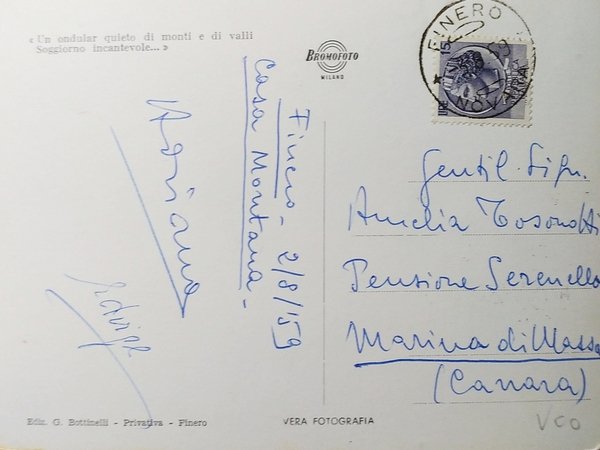 « Un ondular quieto di monti e di valli
Soggiorno incantevole... »
BROMOFOTO
MILANO
FINERO
NOVARA
LIRE 15
Finero - 2/8/'59
Casa Montana -
Adriana
Edvige
Gentil. Sign.
Amelia Tosonotti
Pensione Serenella
Marina di Massa
(Carrara)
Ediz. G. Bottinelli - Privativa - Finero
VERA FOTOGRAFIA
VCO